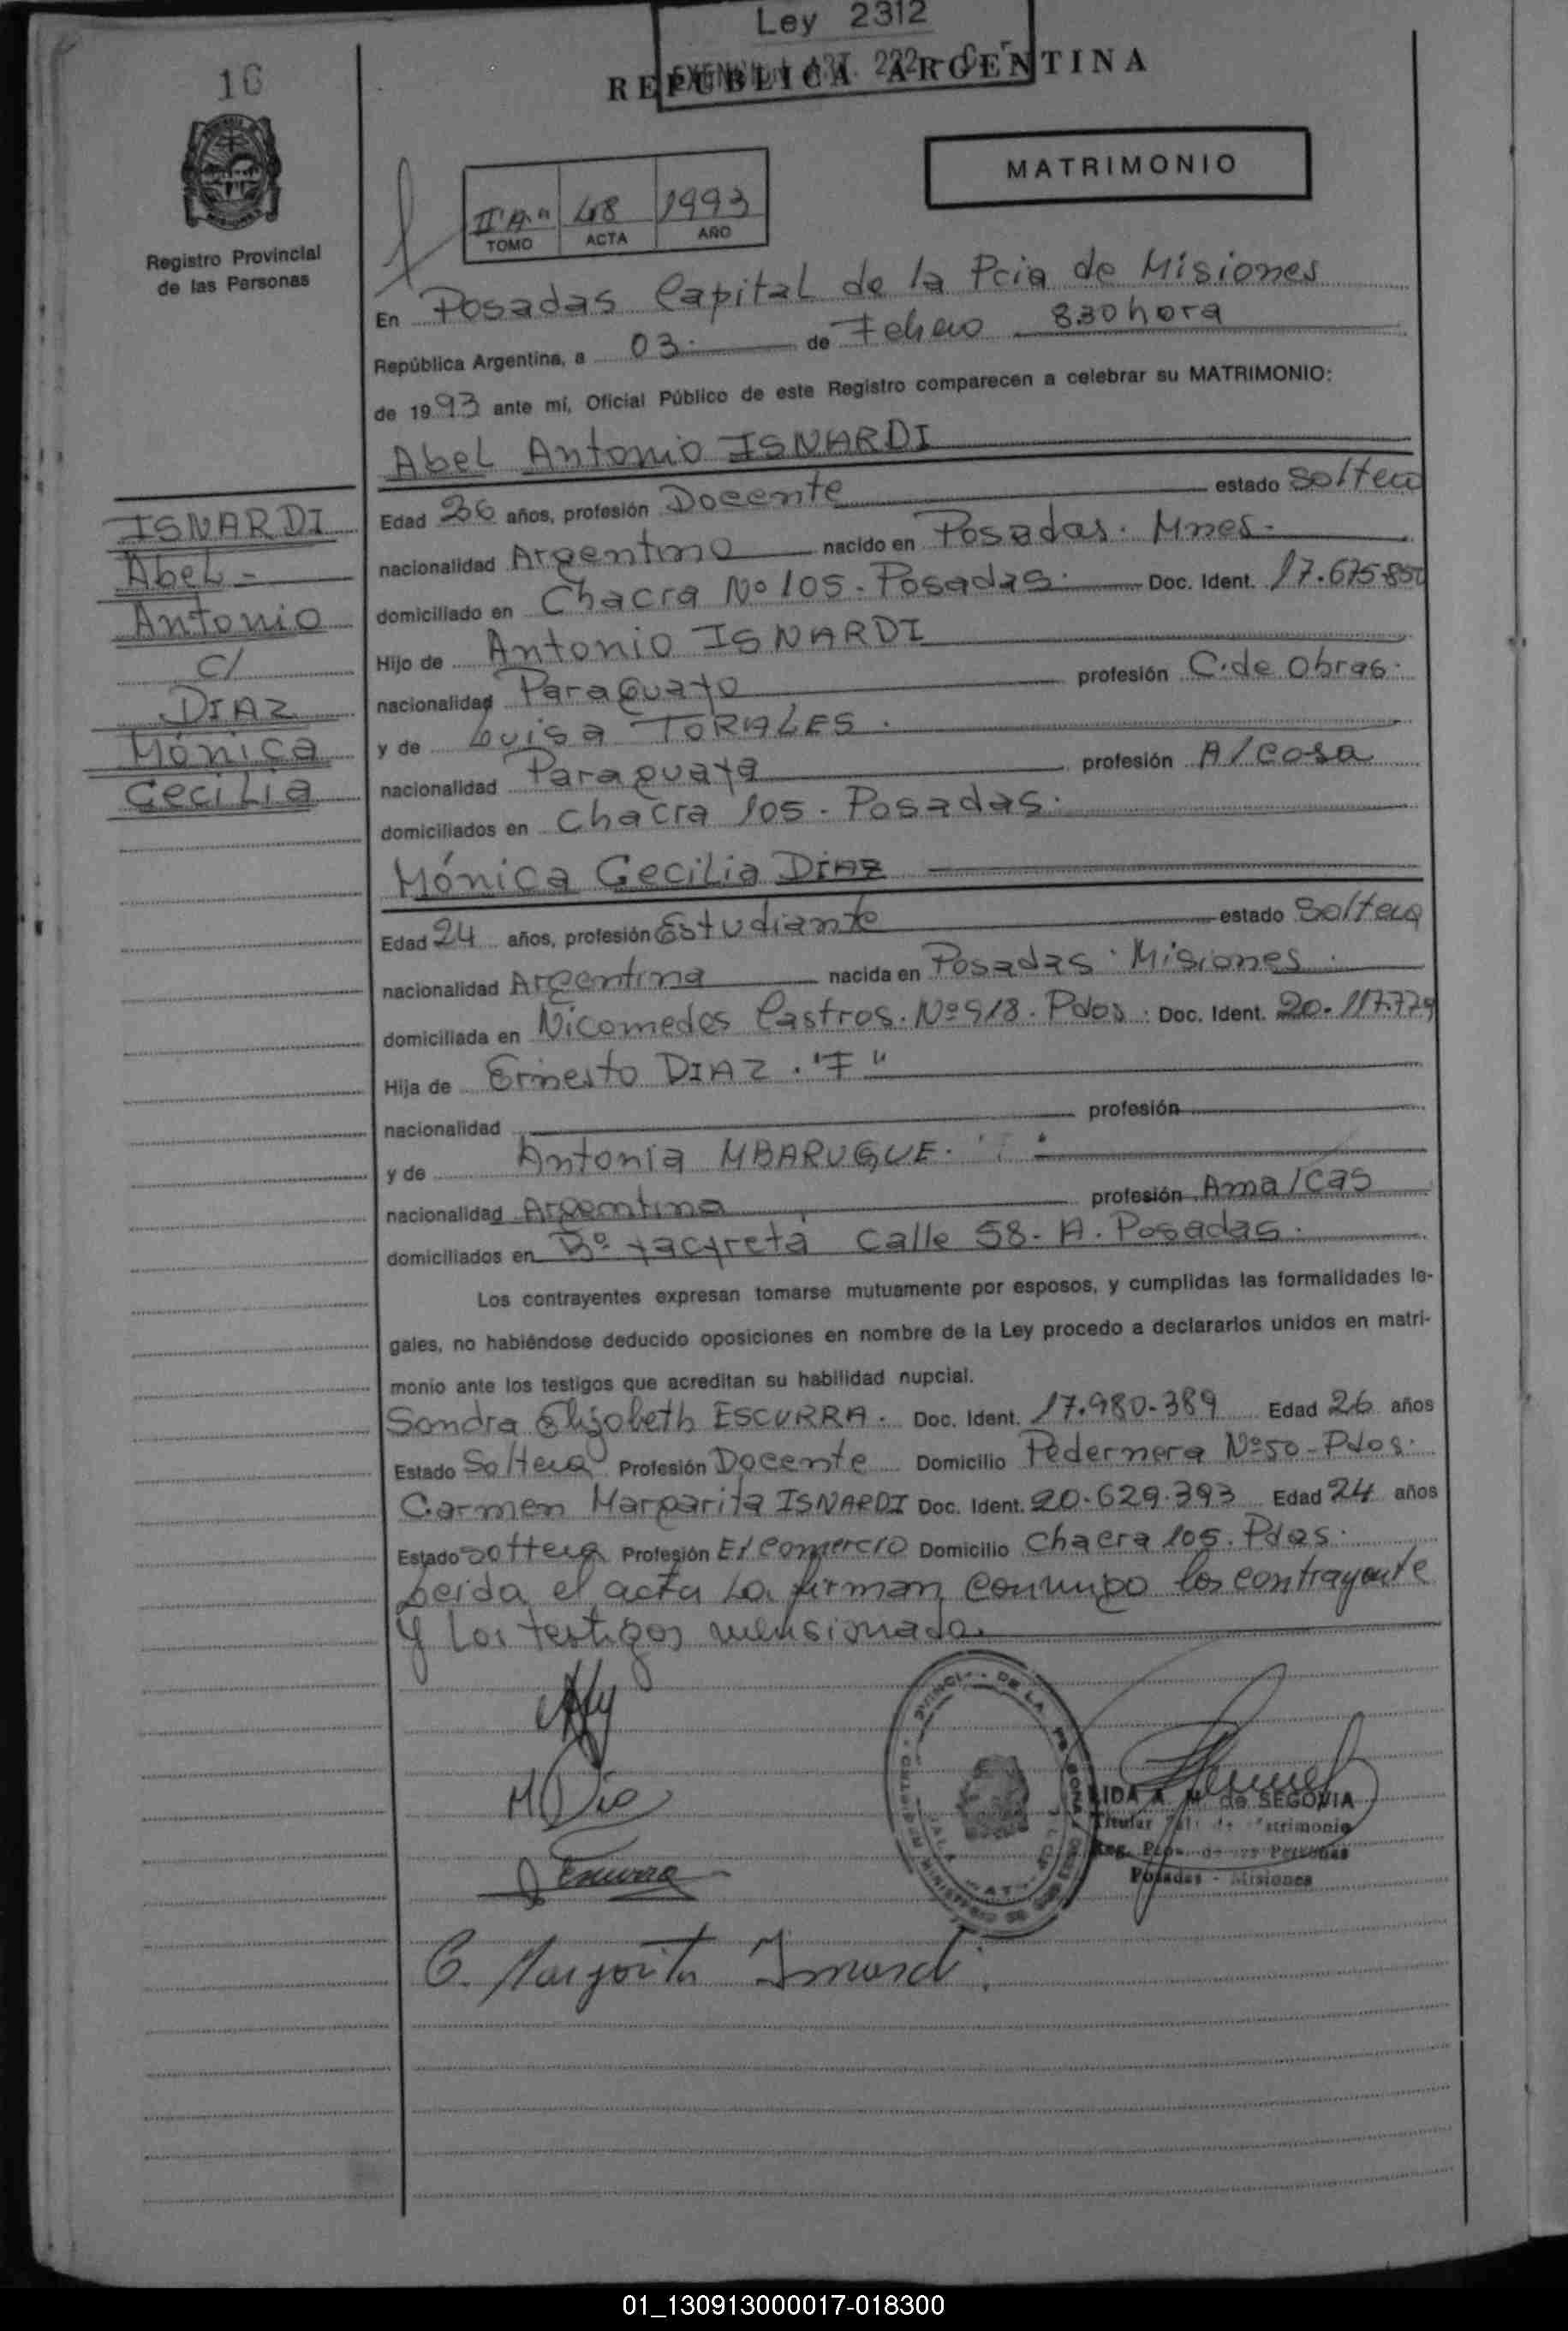 Ley 2312
REPUBLICA ARGENTINA
16
MATRIMONIO
II "A" 48 1993
TOMO ACTA AÑO
Registro Provincial
de las Personas
En Posadas Capital de la Pcia de Misiones
República Argentina, a 03 de Febrero 8.30 hora
de 1993 ante mí, Oficial Público de este Registro comparecen a celebrar su MATRIMONIO:
Abel Antonio ISNARDI
ISNARDI
Abel
Antonio
c/
DIAZ
Mónica
Cecilia
Edad 26 años, profesión Docente estado Soltero
nacionalidad Argentino nacido en Posadas. Mnes.
domiciliado en Chacra Nº 105. Posadas. Doc. Ident. 17.675.850
Hijo de Antonio ISNARDI
nacionalidad Paraguayo profesión C. de Obras.
y de Luisa TORALES.
nacionalidad Paraguaya profesión A/Casa
domiciliados en Chacra 105. Posadas.
Mónica Cecilia DIAZ
Edad 24 años, profesión Estudiante estado Soltera
nacionalidad Argentina nacida en Posadas. Misiones.
domiciliada en Nicomedes Castros. Nº 918. Pdas. Doc. Ident. 20.117.779
Hija de Ernesto DIAZ. "F"
nacionalidad profesión
y de Antonia MBARUGUE.
nacionalidad Argentina profesión Ama/Cas
domiciliados en Bº yacyreta calle 58. A. Posadas.
Los contrayentes expresan tomarse mutuamente por esposos, y cumplidas las formalidades le-
gales, no habiéndose deducido oposiciones en nombre de la Ley procedo a declararlos unidos en matri-
monio ante los testigos que acreditan su habilidad nupcial.
Sandra Elizabeth ESCURRA. Doc. Ident. 17.980.389 Edad 26 años
Estado Soltera Profesión Docente Domicilio Pedernera Nº 50 - Pdas.
Carmen Margarita ISNARDI Doc. Ident. 20.629.393 Edad 24 años
Estado Soltera Profesión E/Comercio Domicilio Chacra 105. Pdas.
Leida el acta La firman conmigo los contrayente
y Los testigos mensionado.
M Diaz
LIDA A. M. de SEGOVIA
Titular de Matrimonio
Reg. Prov. de las Personas
Posadas - Misiones
C. Margarita Isnardi.
01_130913000017-018300